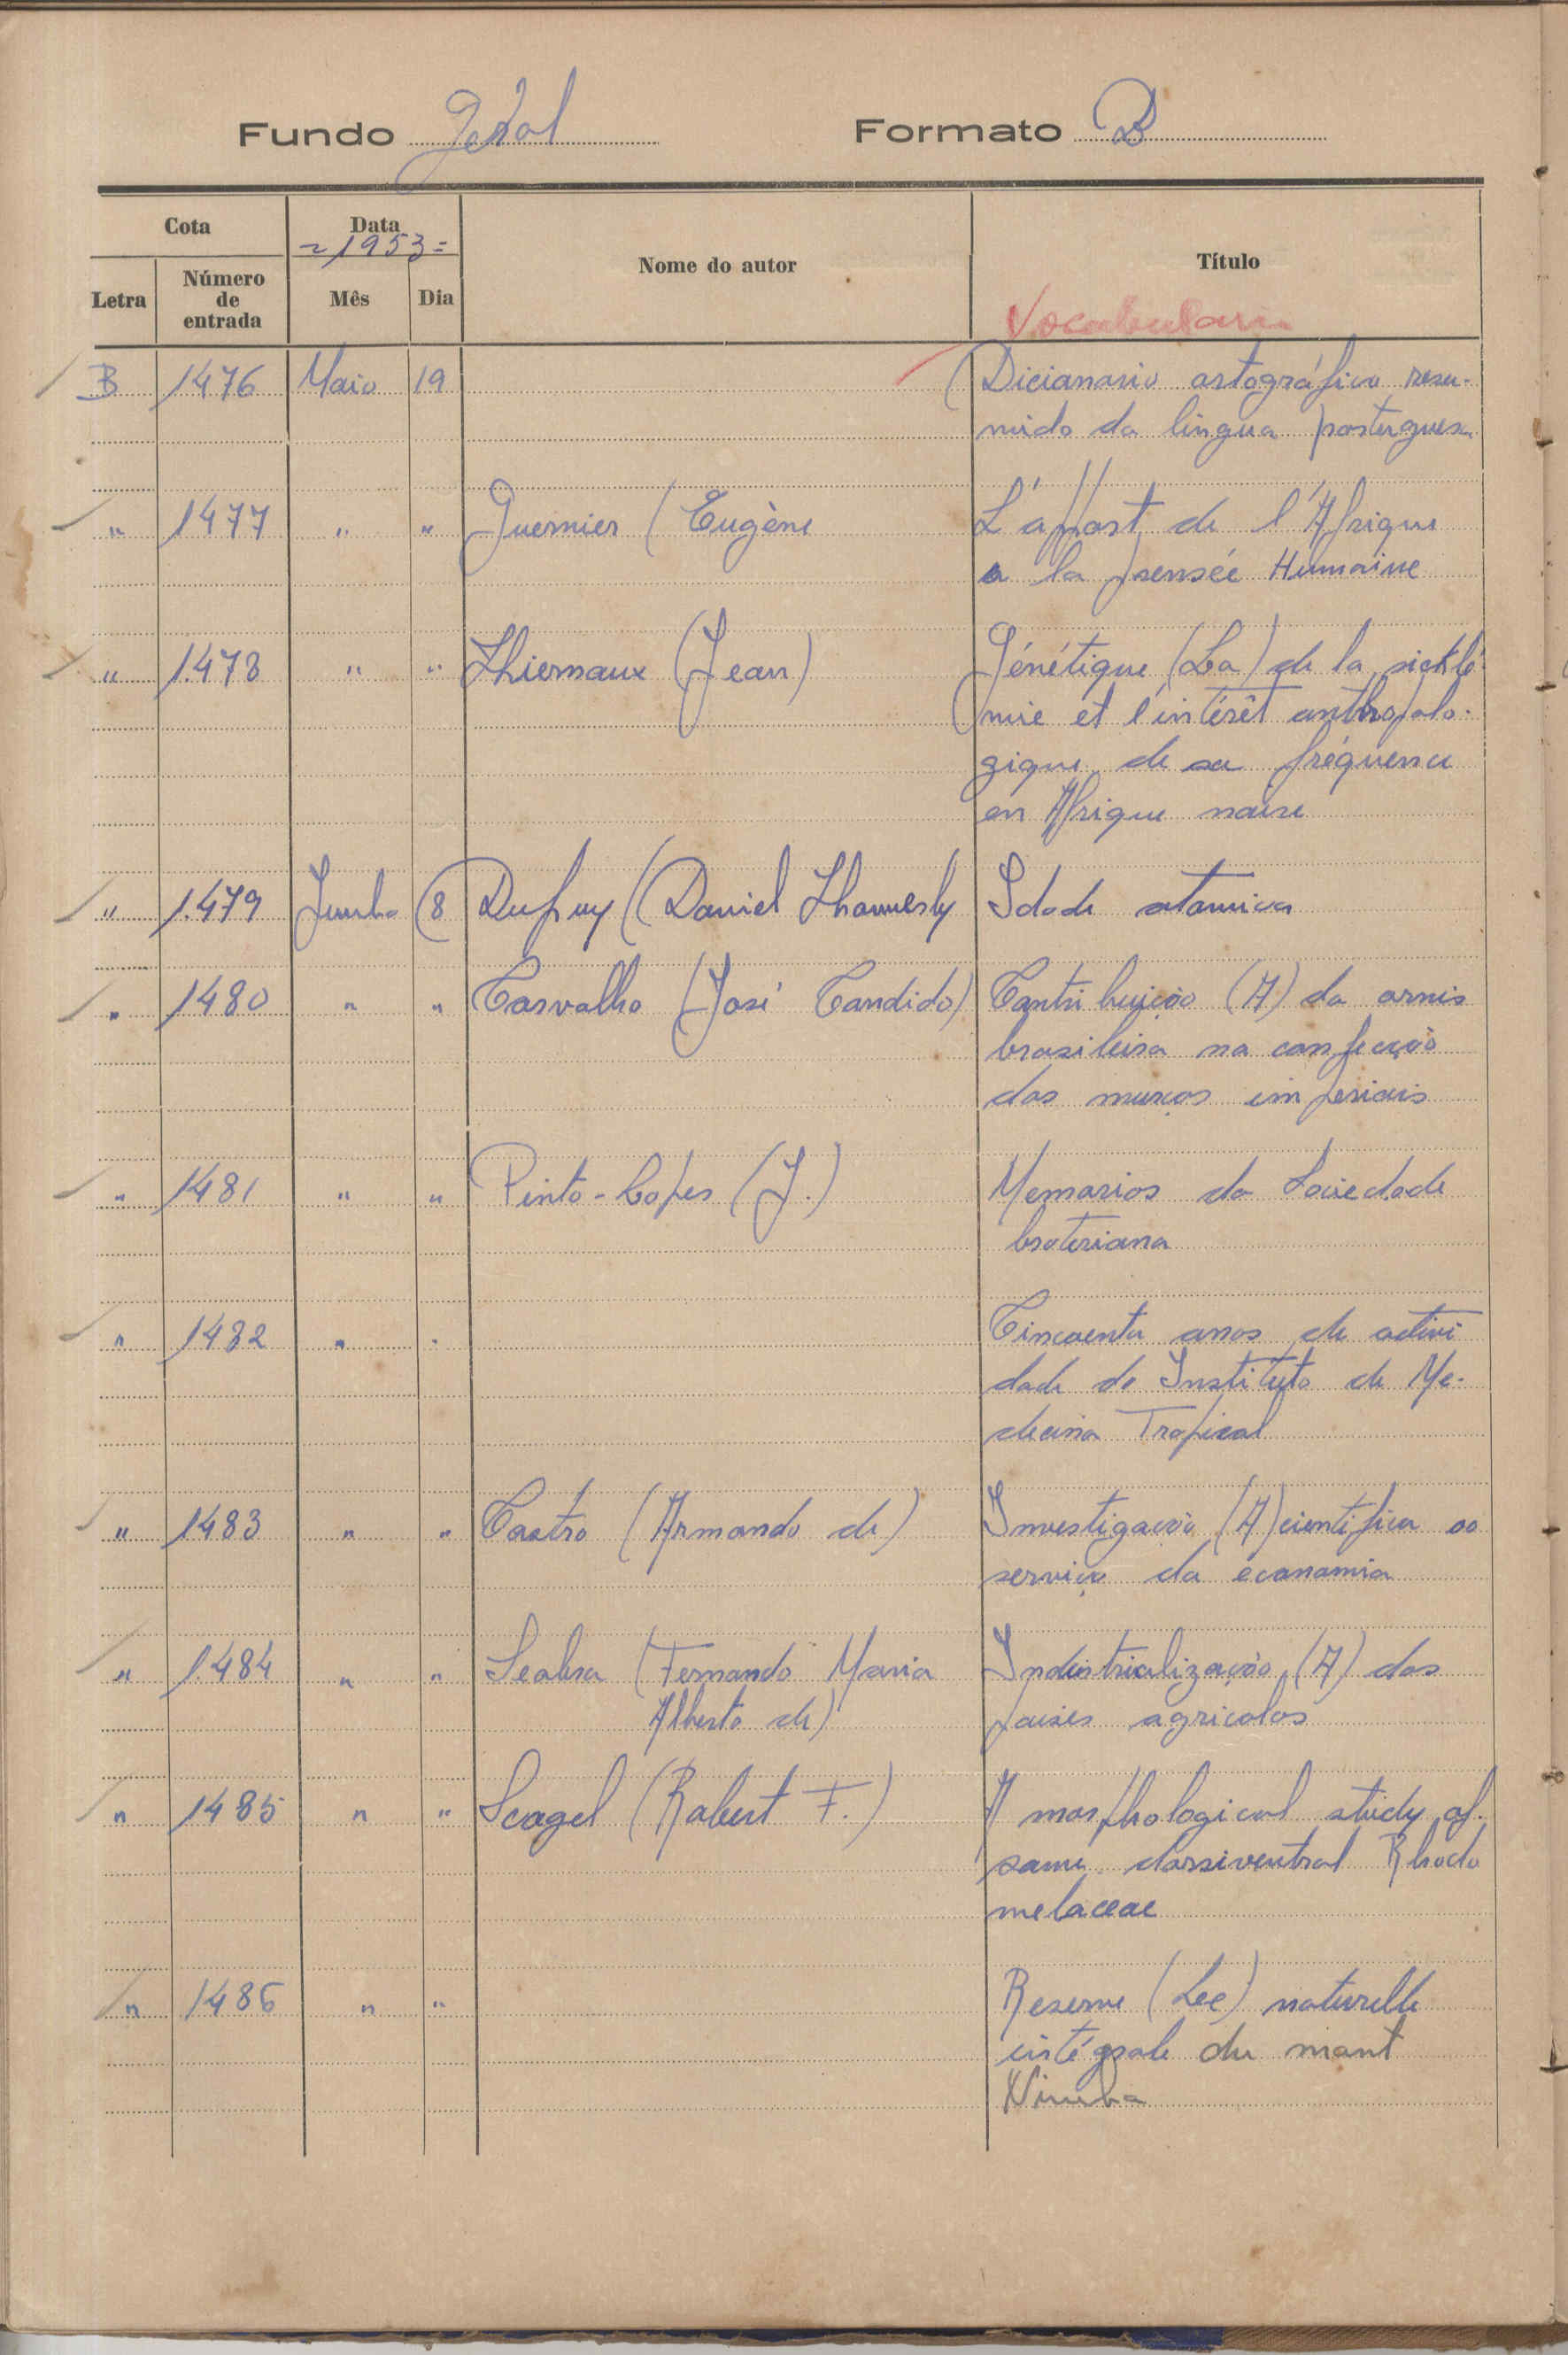 Fundo Geral Formato B
Cota Data Nome do autor Título
=1953=
Letra Número de entrada Mês Dia
Vocabulario
B 1476 Maio 19 (Dicionario ortográfico resu-
mido da lingua portuguesa
" 1477 " " Guernier (Eugène L'apport de l'Afrique
a la pensée Humaine
" 1.478 " " Hiernaux (Jean) Génétique (La) de la sicklé-
mie et l'intérêt anthropolo-
gique de sa fréquence
en Afrique noire
" 1.479 Junho 8 Dupuy (Daniel Idade atomica
" 1480 " " Carvalho (José Candido) Contribuição (A) da ornis
brasileira na confecção
dos murços imperiais
" 1481 " " Pinto-Lopes (J.) Memorias da Sociedade
broteriana
" 1482 " " Cincoenta anos de activi
dade do Instituto de Me-
decina Tropical
" 1483 " " Castro (Armando de) Investigação (A) cientifica ao
serviço da economia
" 1.484 " " Seabra (Fernando Maria Industrialização (A) dos
Alberto de) paises agricolas
" 1485 " " Scagel (Robert F.) A morphological study of
some dorsiventral Rhodo
melaceae
" 1486 " " Reserve (Lee) naturelle
intégrale du mont
Nimba